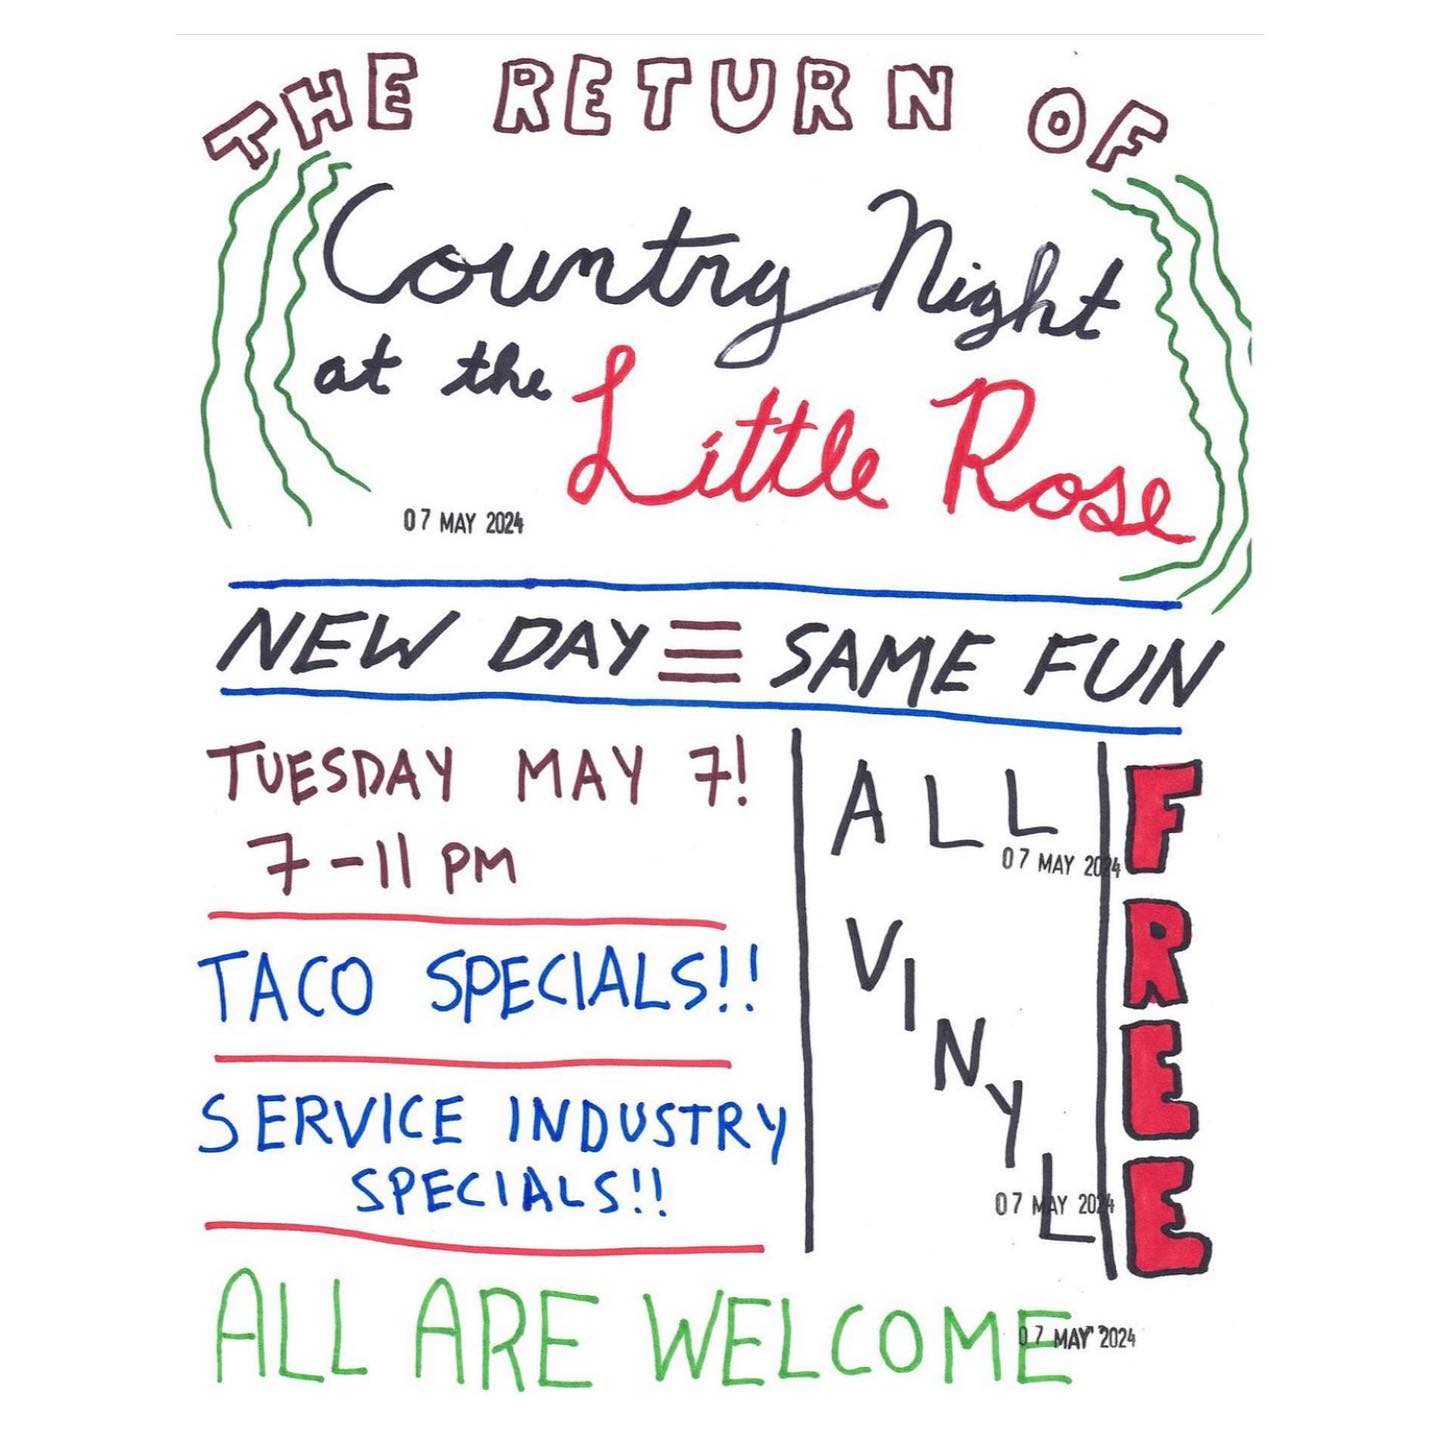 THE RETURN OF
Country Night
at the Little Rose
07 MAY 2024
NEW DAY SAME FUN
TUESDAY MAY 7!
7-11 PM
TACO SPECIALS!!
SERVICE INDUSTRY
SPECIALS!!
ALL
07 MAY 2024
VINYL
07 MAY 2024
FREE
ALL ARE WELCOME
07 MAY 2024